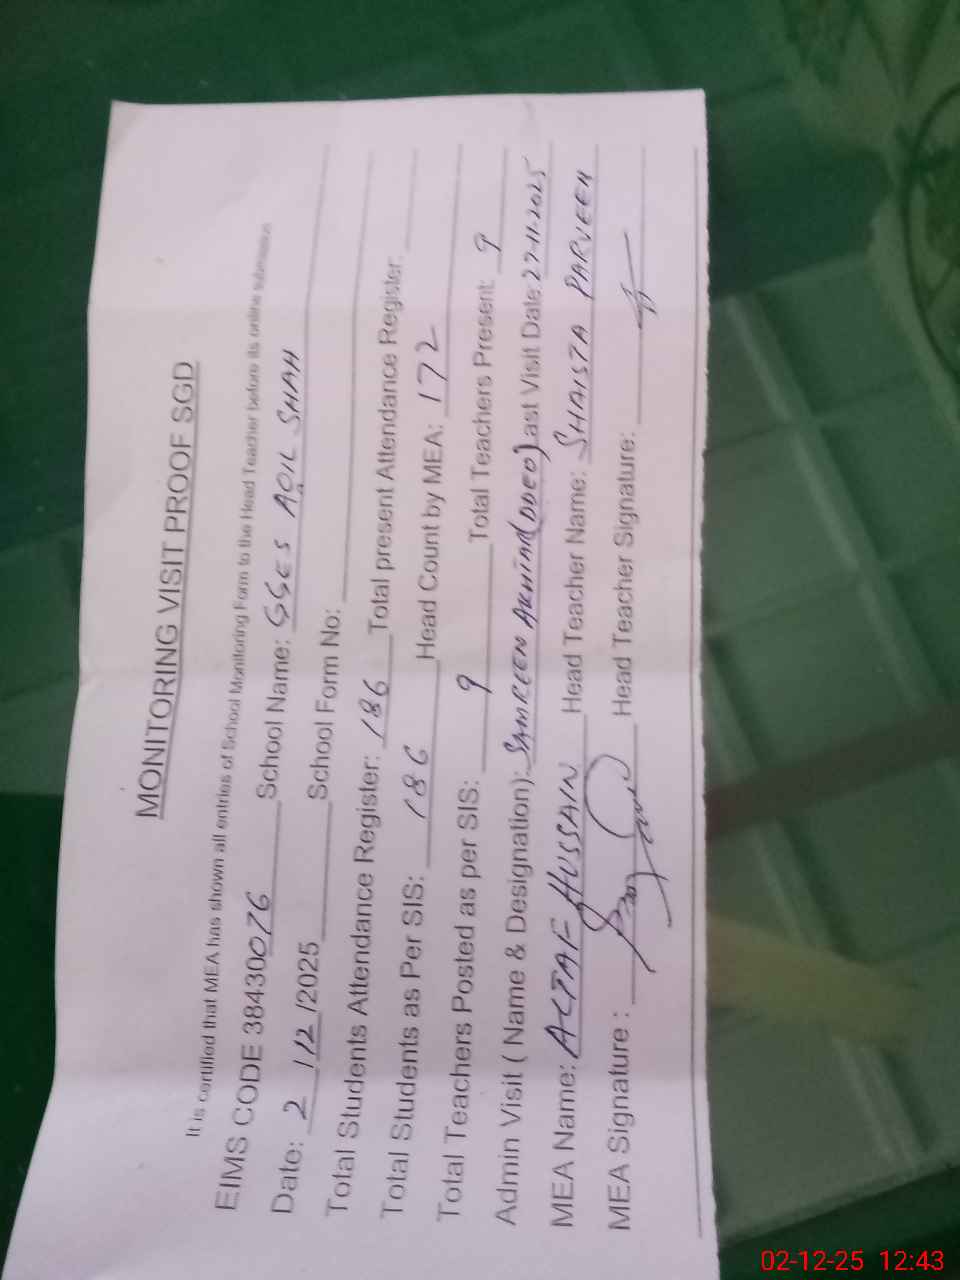 MONITORING VISIT PROOF SGD
It is certified that MEA has shown all entries of School Monitoring Form to the Head Teacher before its online submission
EIMS CODE 38430076 School Name: GGES ADIL SHAH
Date: 2/12/2025 School Form No:
Total Students Attendance Register: 186 Total present Attendance Register:
Total Students as Per SIS: 186 Head Count by MEA: 172
Total Teachers Posted as per SIS: 9 Total Teachers Present: 9
Admin Visit ( Name & Designation): SAMREEN AKHTAR(DDEO) Last Visit Date: 27-11-2025
MEA Name: ALTAF HUSSAIN Head Teacher Name: SHAISTA PARVEEN
MEA Signature : Head Teacher Signature:
02-12-25 12:43